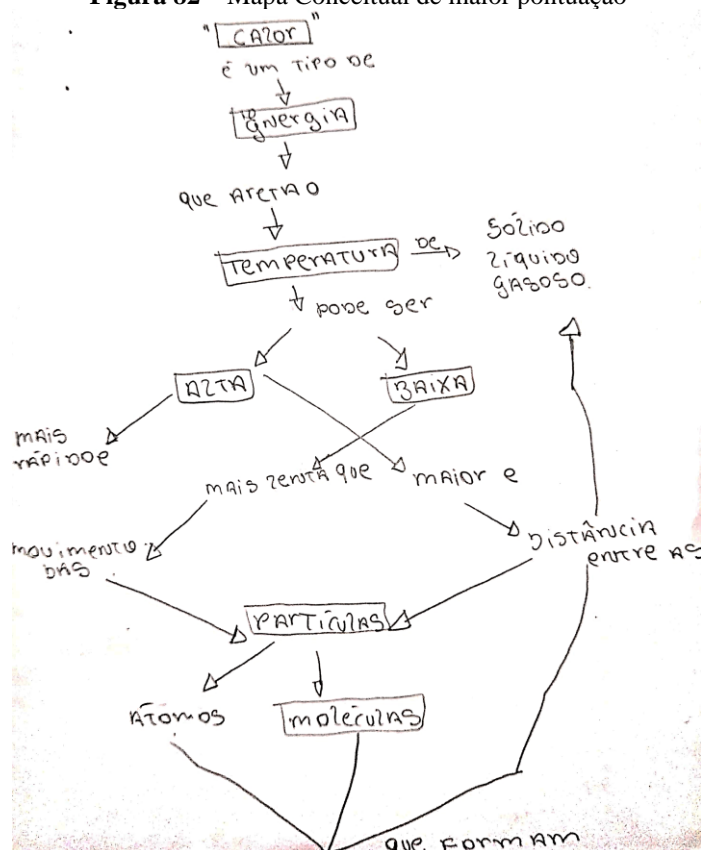 Figura 82 – Mapa Conceitual de maior pontuação
"CALOR"
é um TIPO DE
ENERGIA
que AFETA O
TEMPERATURA
DE
SÓLIDO
LÍQUIDO
GASOSO.
PODE SER
ALTA
BAIXA
MAIS
RÁPIDO e
MAIS LENTA que
MAIOR e
MOVIMENTO
DAS
DISTÂNCIA
ENTRE AS
PARTÍCULAS
ÁTOMOS
MOLÉCULAS
QUE FORMAM